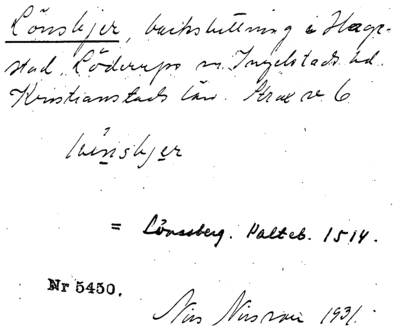 Lönsbjer, backsluttning i Hage-
stad, Löderups sn. Ingelstads hd.
Kristianstads län. Strax v. 6
= Lönssberg. Palteb. 1514.
Nr 5450.
Nils Nilsson 1931.